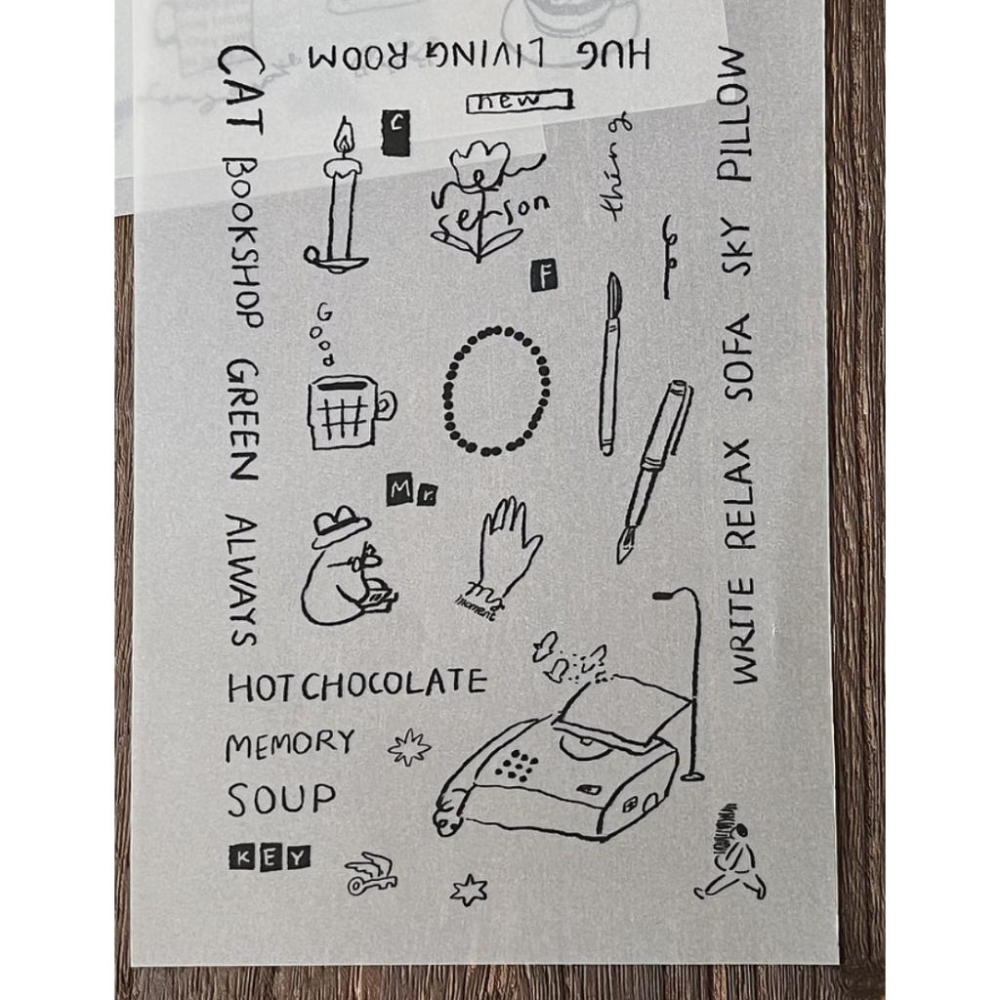 HUG LIVING ROOM
new
C
CAT BOOKSHOP GREEN ALWAYS
thing
WRITE RELAX SOFA SKY PILLOW
F
Good
Mr
my
moment
HOT CHOCOLATE
MEMORY
SOUP
KEY